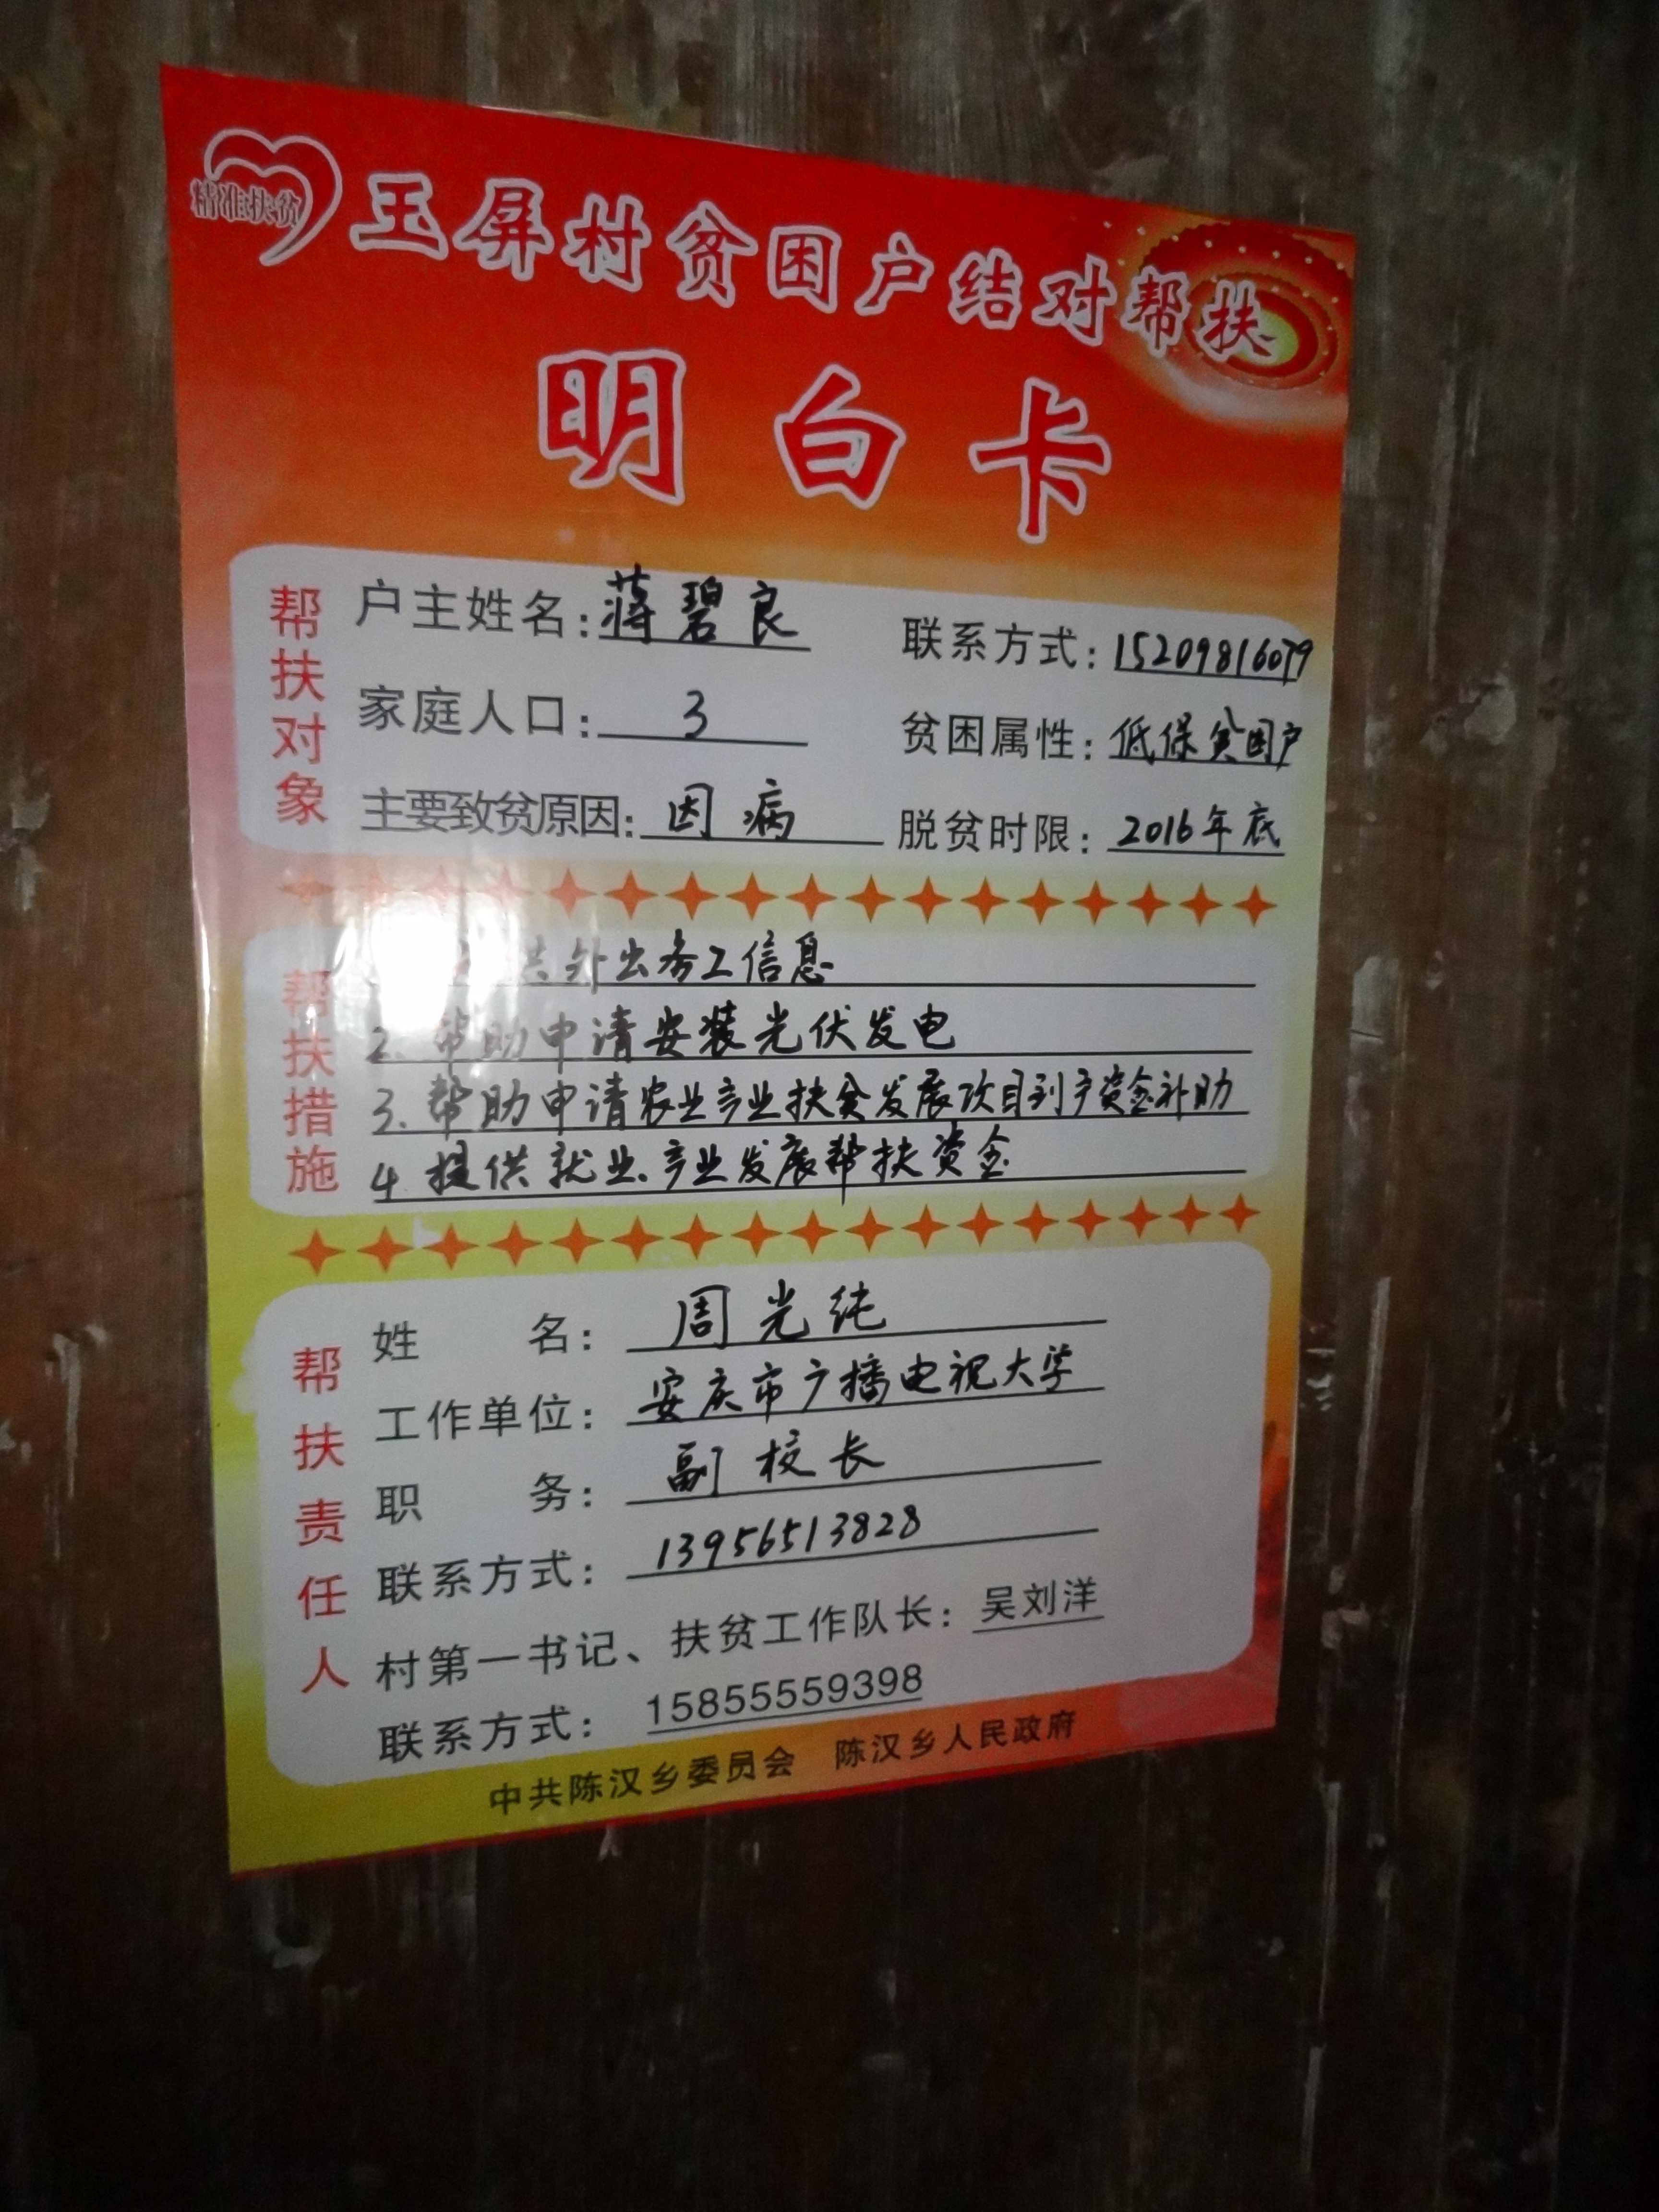 精准扶贫
玉屏村贫困户结对帮扶
明白卡
帮扶对象
户主姓名：蒋碧良 联系方式：15209816079
家庭人口：3 贫困属性：低保贫困户
主要致贫原因：因病 脱贫时限：2016年底
帮扶措施
供外出务工信息
2. 帮助申请安装光伏发电
3. 帮助申请农业产业扶贫发展项目到户资金补助
4. 提供就业、产业发展帮扶资金
帮扶责任人
姓名：周光纯
工作单位：安庆市广播电视大学
职务：副校长
联系方式：13956513828
村第一书记、扶贫工作队长：吴刘洋
联系方式：15855559398
中共陈汉乡委员会 陈汉乡人民政府